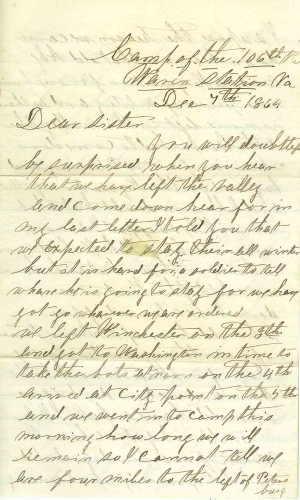 Camp of the 106th
Waren Station Va
Dec 7th 1864
Dear Sister
You will doubtless
be surprised when you hear
that we have left the valley
and come down hear for in
my last letter I told you that
we expected to stay their all winter
but it is hard for a soldier to tell
whare he is going to stay for we hav
got go wharever we are ordered
we left Winchester on the 3th
and got to Washington in time to
take the bote at noon on the 4th
arived at City point on the 5th
and we went in to camp this
morning how long we will
remain so I cannot tell we
are four miles to the left of Peters
burg